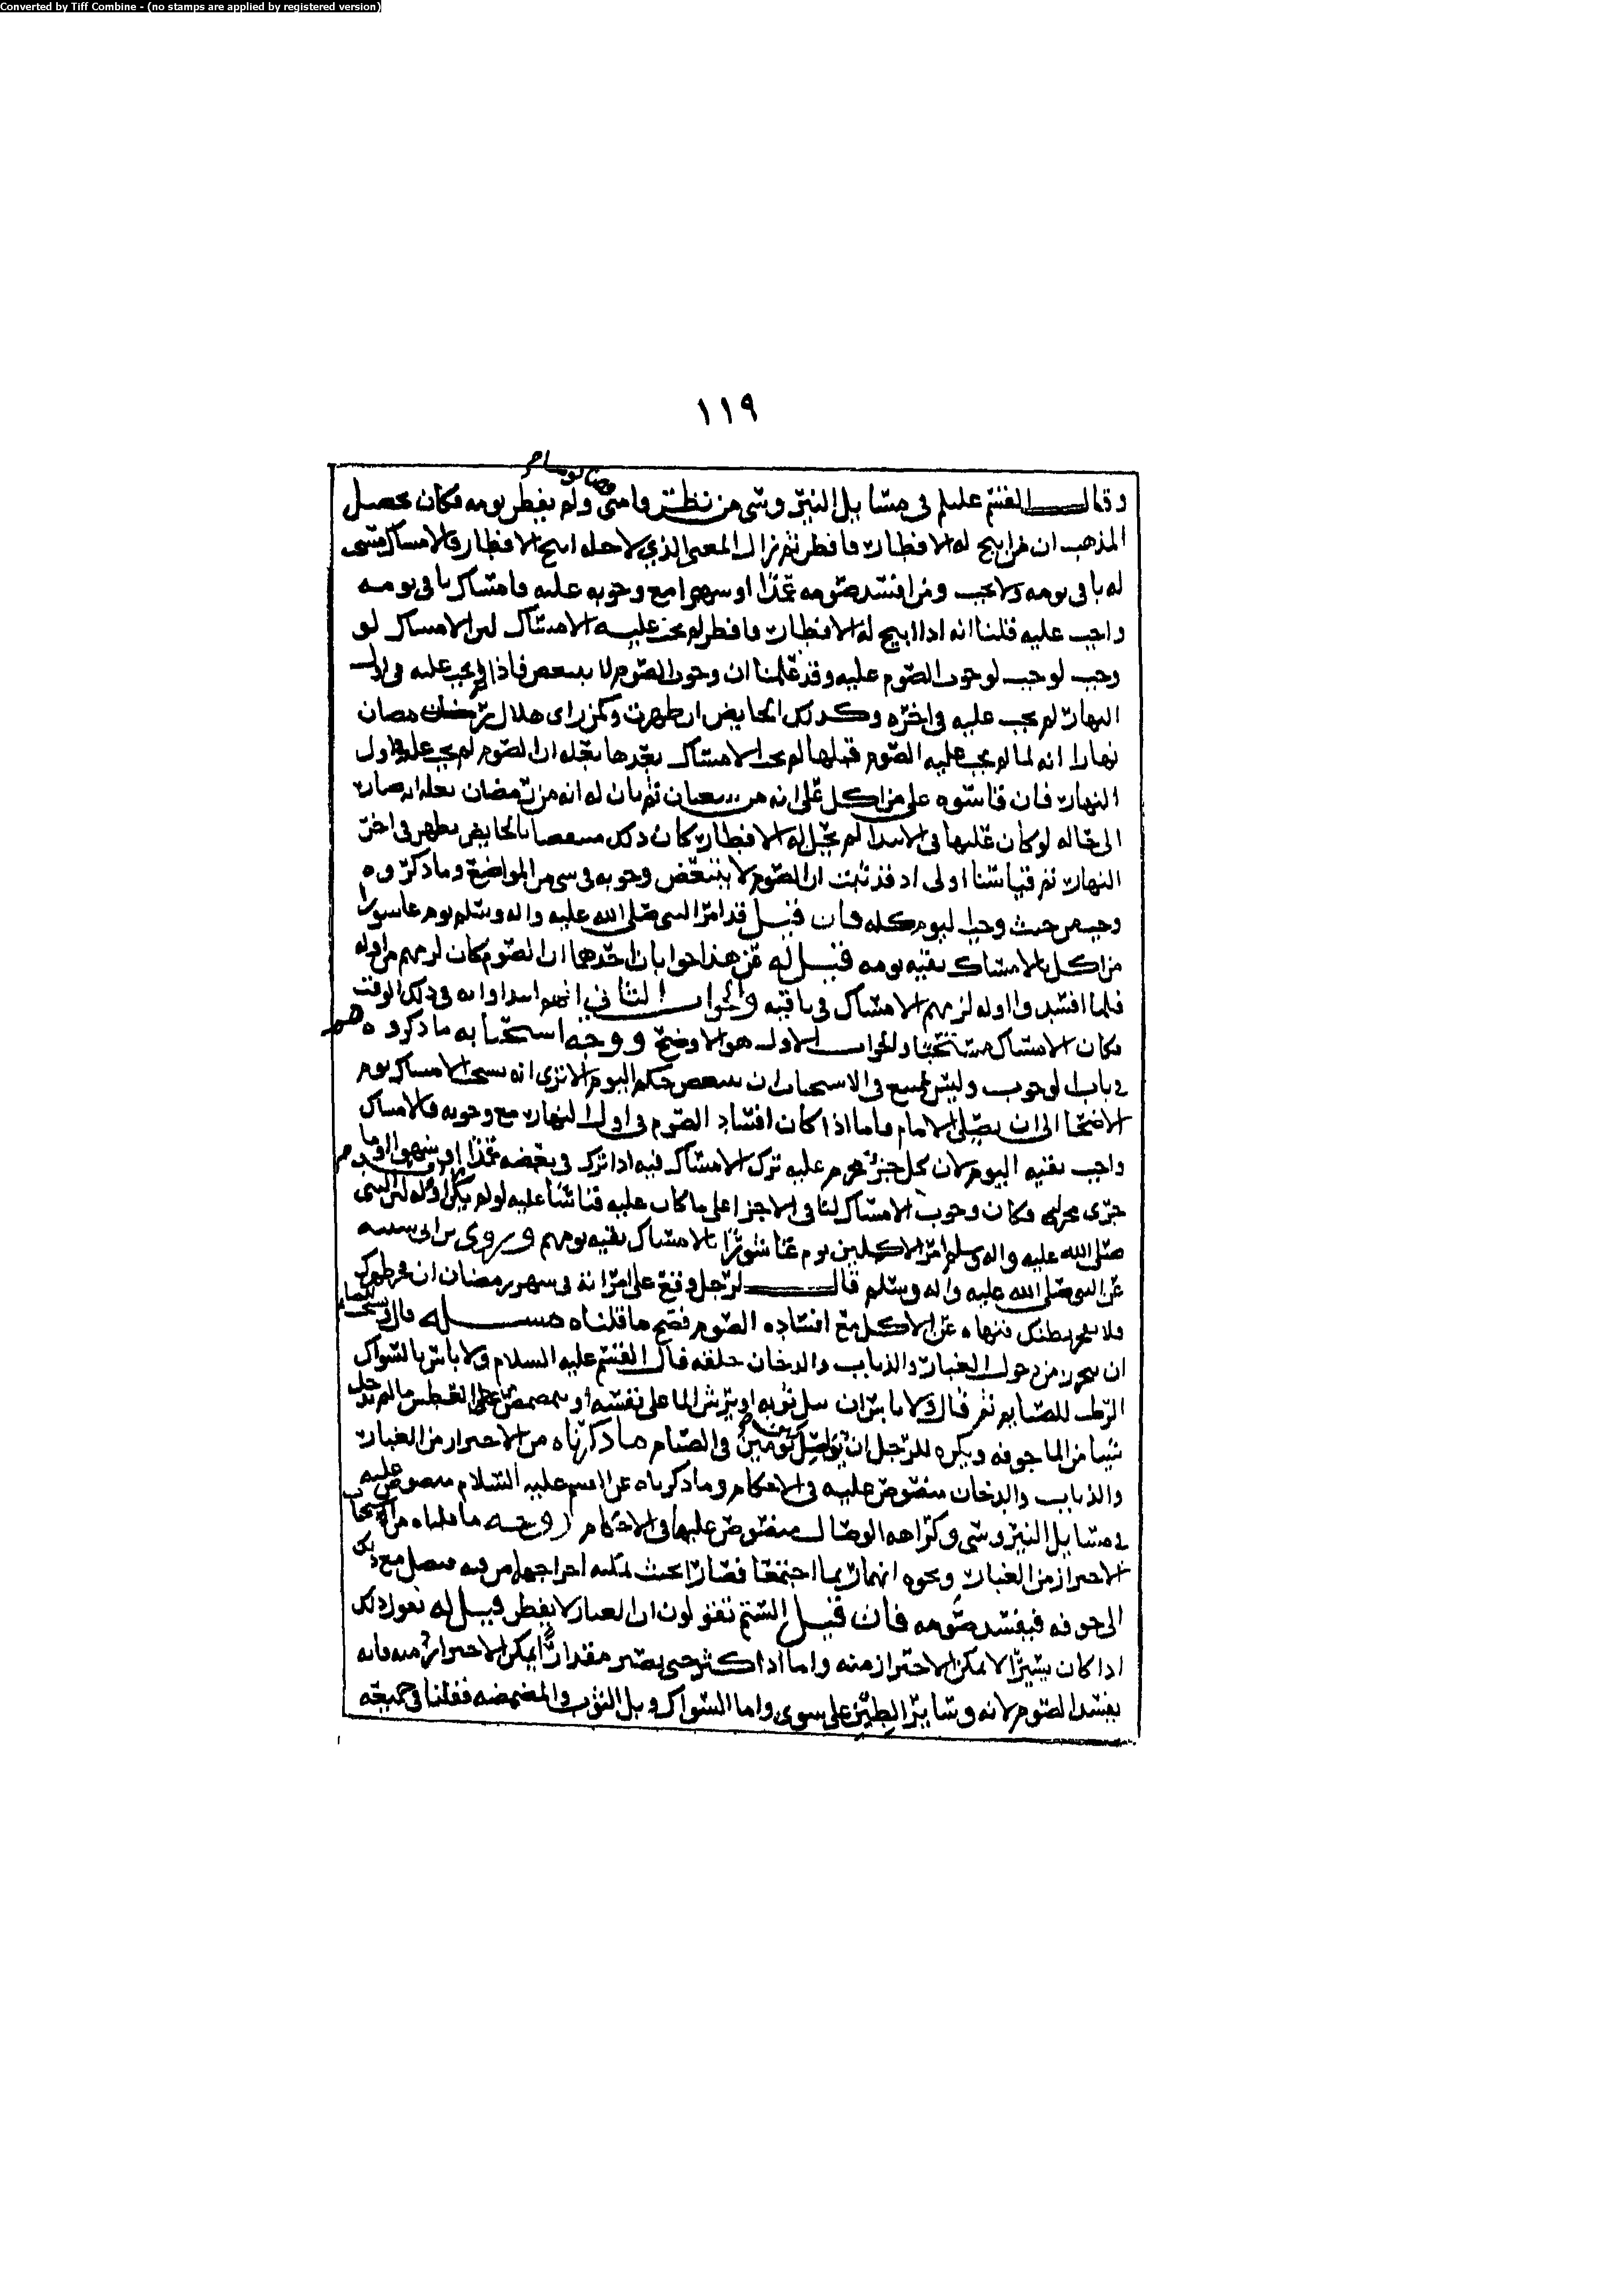 Converted by Tiff Combine - (no stamps are applied by registered version)
١١٩
وقال القسم عليلم في مسايل النيروسي من نظر فامنى ولم يفطر يومه فكان تحصيل
المذهب ان من ابيح له الافطار فافطر ثم زال المعنى الذي لاجله ابيح الافطار فالامساك مستحب
له باقي يومه ولا يجب ومن افسد صومه تعمدا او سهوا مع وجوبه عليه فامساك باقي يومه
واجب عليه قلنا انه اذا ابيح له الافطار فافطر لم يجب عليه الامساك لان الامساك لو
وجب لوجب لوجوب الصوم عليه وقد علمنا ان وجوب الصوم لا يتبعض فاذا لم يجب عليه في اول
النهار لم يجب عليه في اخره وكذلك الحايض ان طهرت وكمن راى هلال رمضان
نهارا انه لما لم يجب عليه الصوم قبلها لم يجب الامساك بعدها بعله ان الصوم لم يجب عليه في اول
النهار فان قاسوه على من اكل على انه من شعبان ثم بان له انه من رمضان بعله انه صار
الى حاله لو كان عليها في الابتدا لم يحل له الافطار كان ذلك منتقصا بالحايض تطهر في اخر
النهار ثم قياسنا اولى اذ قد ثبت ان الصوم لا يتبعض وجوبه في شي من المواضع وما ذكروه
وجب من حيث وجب اليوم كله فان قيل قد امر النبي صلى الله عليه واله وسلم يوم عاشورا
من اكل بالامساك بقيه يومه قيل له عن هذا جوابان احدهما ان الصوم كان لزمهم من اوله
فلما افسدوا اوله لزمهم الامساك في باقيه والجواب الثاني انهم ابتداوا به في ذلك الوقت
فكان الامساك مستحبا والجواب الاول هو الاوضح ووجه استحبابه ما ذكروه هم
في باب الوجوب وليس يمتنع في الاستحباب ان يتبعض حكم اليوم الا ترى انه يستحب الامساك يوم
الاضحى الى ان يصلي الامام فاما اذا كان افساد الصوم في اول النهار مع وجوبه فالامساك
واجب بقيه اليوم لان كل جزء محرم عليه ترك الامساك فيه اذا ترك في بعضه تعمدا او سهوا او ما
جرى مجراه فكان وجوب الامساك لباقي الاجزا على ما كان عليه قياسا عليه لو لم يكن اوله لان النبي
صلى الله عليه واله وسلم امر الاكلين يوم عاشورا بالامساك بقيه يومهم وروى
عن النبي صلى الله عليه واله وسلم قال لرجل وقع على امراته في شهر رمضان ان فجر ظهرك
فلا يفجر بطنك فنهاه عن الاكل مع افساده الصوم فصح ما قلناه مسله قال ويستحب للصايم
ان يحترز من دخول الغبار والذباب والدخان حلقه قال القسم عليه السلام ولا باس بالسواك
الرطب للصايم ثم قال لا باس ان يبل ثوبه او يرش الما على نفسه او يتمضمض من العطش ما لم يدخل
شيا من الما جوفه ويكره للرجل ان يواصل يومين في الصيام ما ذكرناه من الاحتراز من الغبار
والذباب والدخان منصوص عليه في الاحكام وما ذكرناه عن القسم عليه السلام منصوص عليه
في مسايل النيروسي وكراهه الوصال منصوص عليها في الاحكام ووجه ما قلناه من استحباب
الاحتراز من الغبار ونحوه انهما ربما اجتمعا فصارا بحيث يمكنه اخراجهما من فيه فيصل مع ذلك
الى جوفه فيفسد صومه فان قيل الستم تقولون ان الغبار لا يفطر قيل له نقول ذلك
اذا كان يسيرا لا يمكن الاحتراز منه واما اذا كثر حتى يصير مقدارا يمكن الاحتراز منه فانه
يفسد الصوم لانه وساير الطين على سوى واما السواك وبل الثوب والمضمضه فقلنا في جميعه